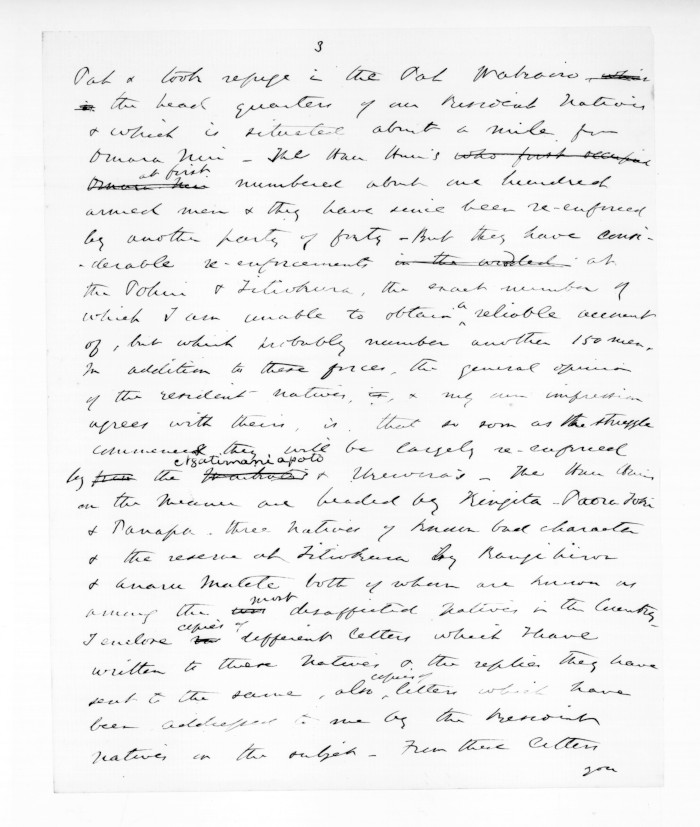 3
Pah & took refuge in the Pah Waka
the head quarters of our Resident Natives
& which is situated about a mile from
Omara Nui - The Hau Hau's who first occupied
Omara Nui at first numbered about one hundred
armed men & they have since been re-enforced
by another party of forty - But they have consi-
-derable re-enforcements in the at
the Pohui & Titiokura, the exact number of
which I am unable to obtain a reliable account
of, but which probably number another 150 men.
In addition to these forces, the general opinion
of the resident natives, is, & my own impression
agrees with theirs, is, that so soon as the struggle
commences they will be largely re-enforced
by from the Waikatos Ngatimaniapoto & Urewera's - The Hau Haus
on the are headed by Kingita - Paora Toki
& Panapa - three natives of known bad character
& the reserve at Titiokura by Rangihiroa
& Anaru Matete both of whom are known as
among the most disaffected Natives in the Country -
I enclose copies of different letters which I have
written to these Natives & the replies they have
sent to the same, also copies of letters which have
been addressed to me by the Resident
Natives on the subject - From these letters
you